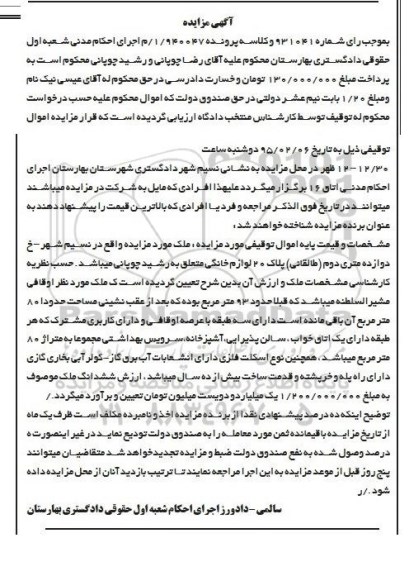 آگهی مزایده
بموجب رای شماره ۹۳۱۰۴۱ و کلاسه پرونده ۹۴۰۰۴۷/۱/م اجرای احکام مدنی شعبه اول
حقوقی دادگستری بهارستان محکوم علیه آقای رضا چوپانی و رشید چوپانی محکوم است به
پرداخت مبلغ ۱۳۰/۰۰۰/۰۰۰ تومان و خسارت دادرسی در حق محکوم له آقای عیسی نیک نام
ومبلغ ۱/۲۰ بابت نیم عشر دولتی در حق صندوق دولت که اموال محکوم علیه حسب درخواست
محکوم له توقیف توسط کارشناس منتخب دادگاه ارزیابی گردیده است که قرار مزایده اموال
توقیفی ذیل به تاریخ ۹۵/۰۲/۰۶ دوشنبه ساعت
۱۲/۳۰-۱۲ ظهر در محل مزایده به نشانی نسیم شهر دادگستری شهرستان بهارستان اجرای
احکام مدنی اتاق ۱۶ برگزار میگردد علیهذا افرادی که مایل به شرکت در مزایده میباشند
میتوانند در تاریخ فوق الذکر مراجعه و فرد یا افرادی که بالاترین قیمت را پیشنهاد دهند به
عنوان برنده مزایده شناخته خواهند شد،
مشخصات و قیمت پایه اموال توقیفی مورد مزایده، ملک مورد مزایده واقع در نسیم شهر-خ
دوازده متری دوم (طالقانی) پلاک ۲۰ لوازم خانگی متعلق به رشید چوپانی میباشد. حسب نظریه
کارشناسی مشخصات ملک و ارزش آن بدین شرح تعیین گردیده است ک ملک مورد نظر اوقافی
مشیرالسلطنه میباشد که قبلا حدود ۹۳ متر مربع بوده که بعد از عقب نشینی مساحت حدودا ۸۰
متر مربع آن باقی مانده است دارای سه طبقه با عرصه اوقافی و دارای کاربری مشترک که هر
طبقه دارای یک اتاق خواب، سالن پذیرایی، آشپزخانه، سرویس بهداشتی مجموعا به متراژ ۸۰
متر مربع میباشد، همچنین نوع اسکلت فلزی دارای انشعابات آب برق گاز-کولر آبی بخاری گازی
دارای راه پله و خرپشته و قدمت ساخت بیش از ده سال میباشد. ارزش ششدانگ ملک موصوف
به مبلغ ۱/۲۰۰/۰۰۰/۰۰۰ یک میلیارد و دویست میلیون تومان تعیین و برآورد میگردد./
توضیح اینکه ده درصد پیشنهادی نقدا از برنده مزایده اخذ و نامبرده مکلف است ظرف یک ماه
از تاریخ مزایده باقیمانده ثمن مورد معامله را به صندوق دولت تودیع نماید در غیر اینصورت ه
درصد وصول شده به نفع صندوق دولت ضبط و مزایده تجدید خواهد شد متقاضیان میتوانند
پنج روز قبل از موعد مزایده به این اجرا مراجعه نمایند تا ترتیب بازدید آنان از محل مزایده داده
شود./ر
سالمی-دادورز اجرای احکام شعبه اول حقوقی دادگستری بهارستان